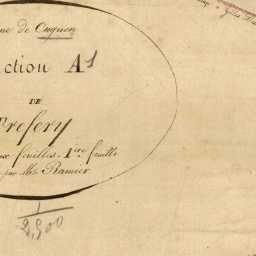 ne de Cuguen
ction A1
DE
refery
ux feuilles. 1ère feuille
par Mr. Ramier
1
2,500